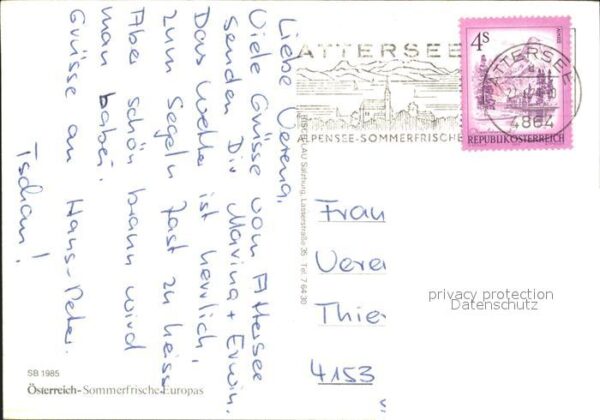 Liebe Verena,
Viele Grüsse vom Attersee
senden Dir Marina + Erwin.
Das Wetter ist herrlich,
zum Segeln fast zu heiss
Aber schön braun wird
man dabei.
Grüsse an Hans-Peter.
Tschau!
ATTERSEE
ALPENSEE-SOMMERFRISCHE
4S
REPUBLIK ÖSTERREICH
ATTERSEE
4864
Salzburg, Lasserstraße 35 Tel. 7 64 30
Frau
Veren
Thie
4153
privacy protection
Datenschutz
SB 1985
Österreich-Sommerfrische Europas